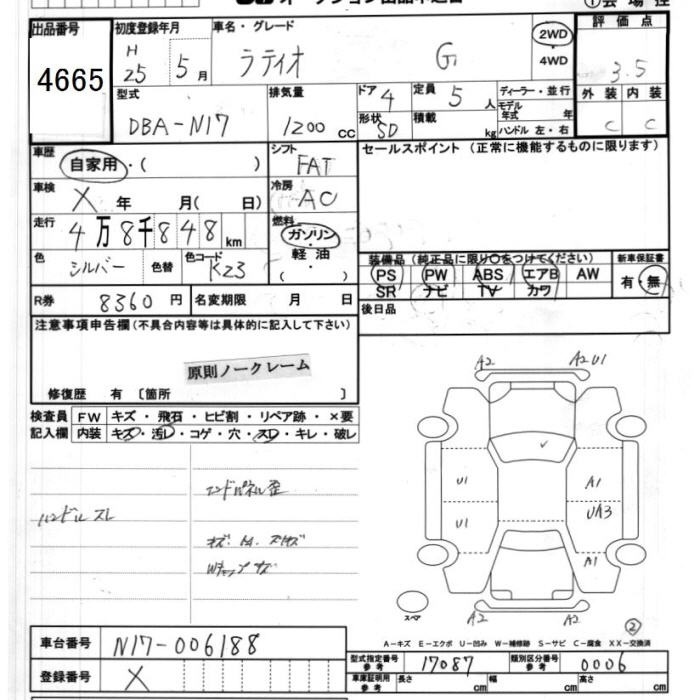 出品番号
4665
初度登録年月
H
25 5 月
車名・グレード
ラティオ G
2WD
4WD
評価点
3.5
外装 内装
C C
型式
DBA-N17
排気量
1200 cc
ドア 4
形状 SD
定員 5 人
積載 kg
ディーラー・並行
モデル年式 年
ハンドル 左・右
車歴
自家用・( )
車検
X 年 月( 日)
走行
4万8千848 km
色
シルバー
色替
色コード
K23
シフト
FAT
冷房
AC
燃料
ガソリン
軽油
( ・ )
R券 8360 円
名変期限 月 日
セールスポイント (正常に機能するものに限ります)
装備品 (純正品に限り○をつけてください)
PS PW ABS エアB AW
SR ナビ TV カワ
新車保証書
有・無
後日品
注意事項申告欄(不具合内容等は具体的に記入して下さい)
原則ノークレーム
修復歴 有 〔箇所 〕
検査員記入欄
FW キズ・飛石・ヒビ割・リペア跡・×要
内装 キズ・汚レ・コゲ・穴・スレ・キレ・破レ
ハンドルスレ
エンドパネル歪
A2 A2 U1
U1 A1
U1 UA3
A1
スペア
A2 A2
②
A-キズ E-エクボ U-凹み W-補修跡 S-サビ C-腐食 XX-交換済
車台番号 N17-006188
登録番号 X
型式指定番号 参考 17087
類別区分番号 参考 0006
車庫証明用 参考
長さ cm 幅 cm 高さ cm